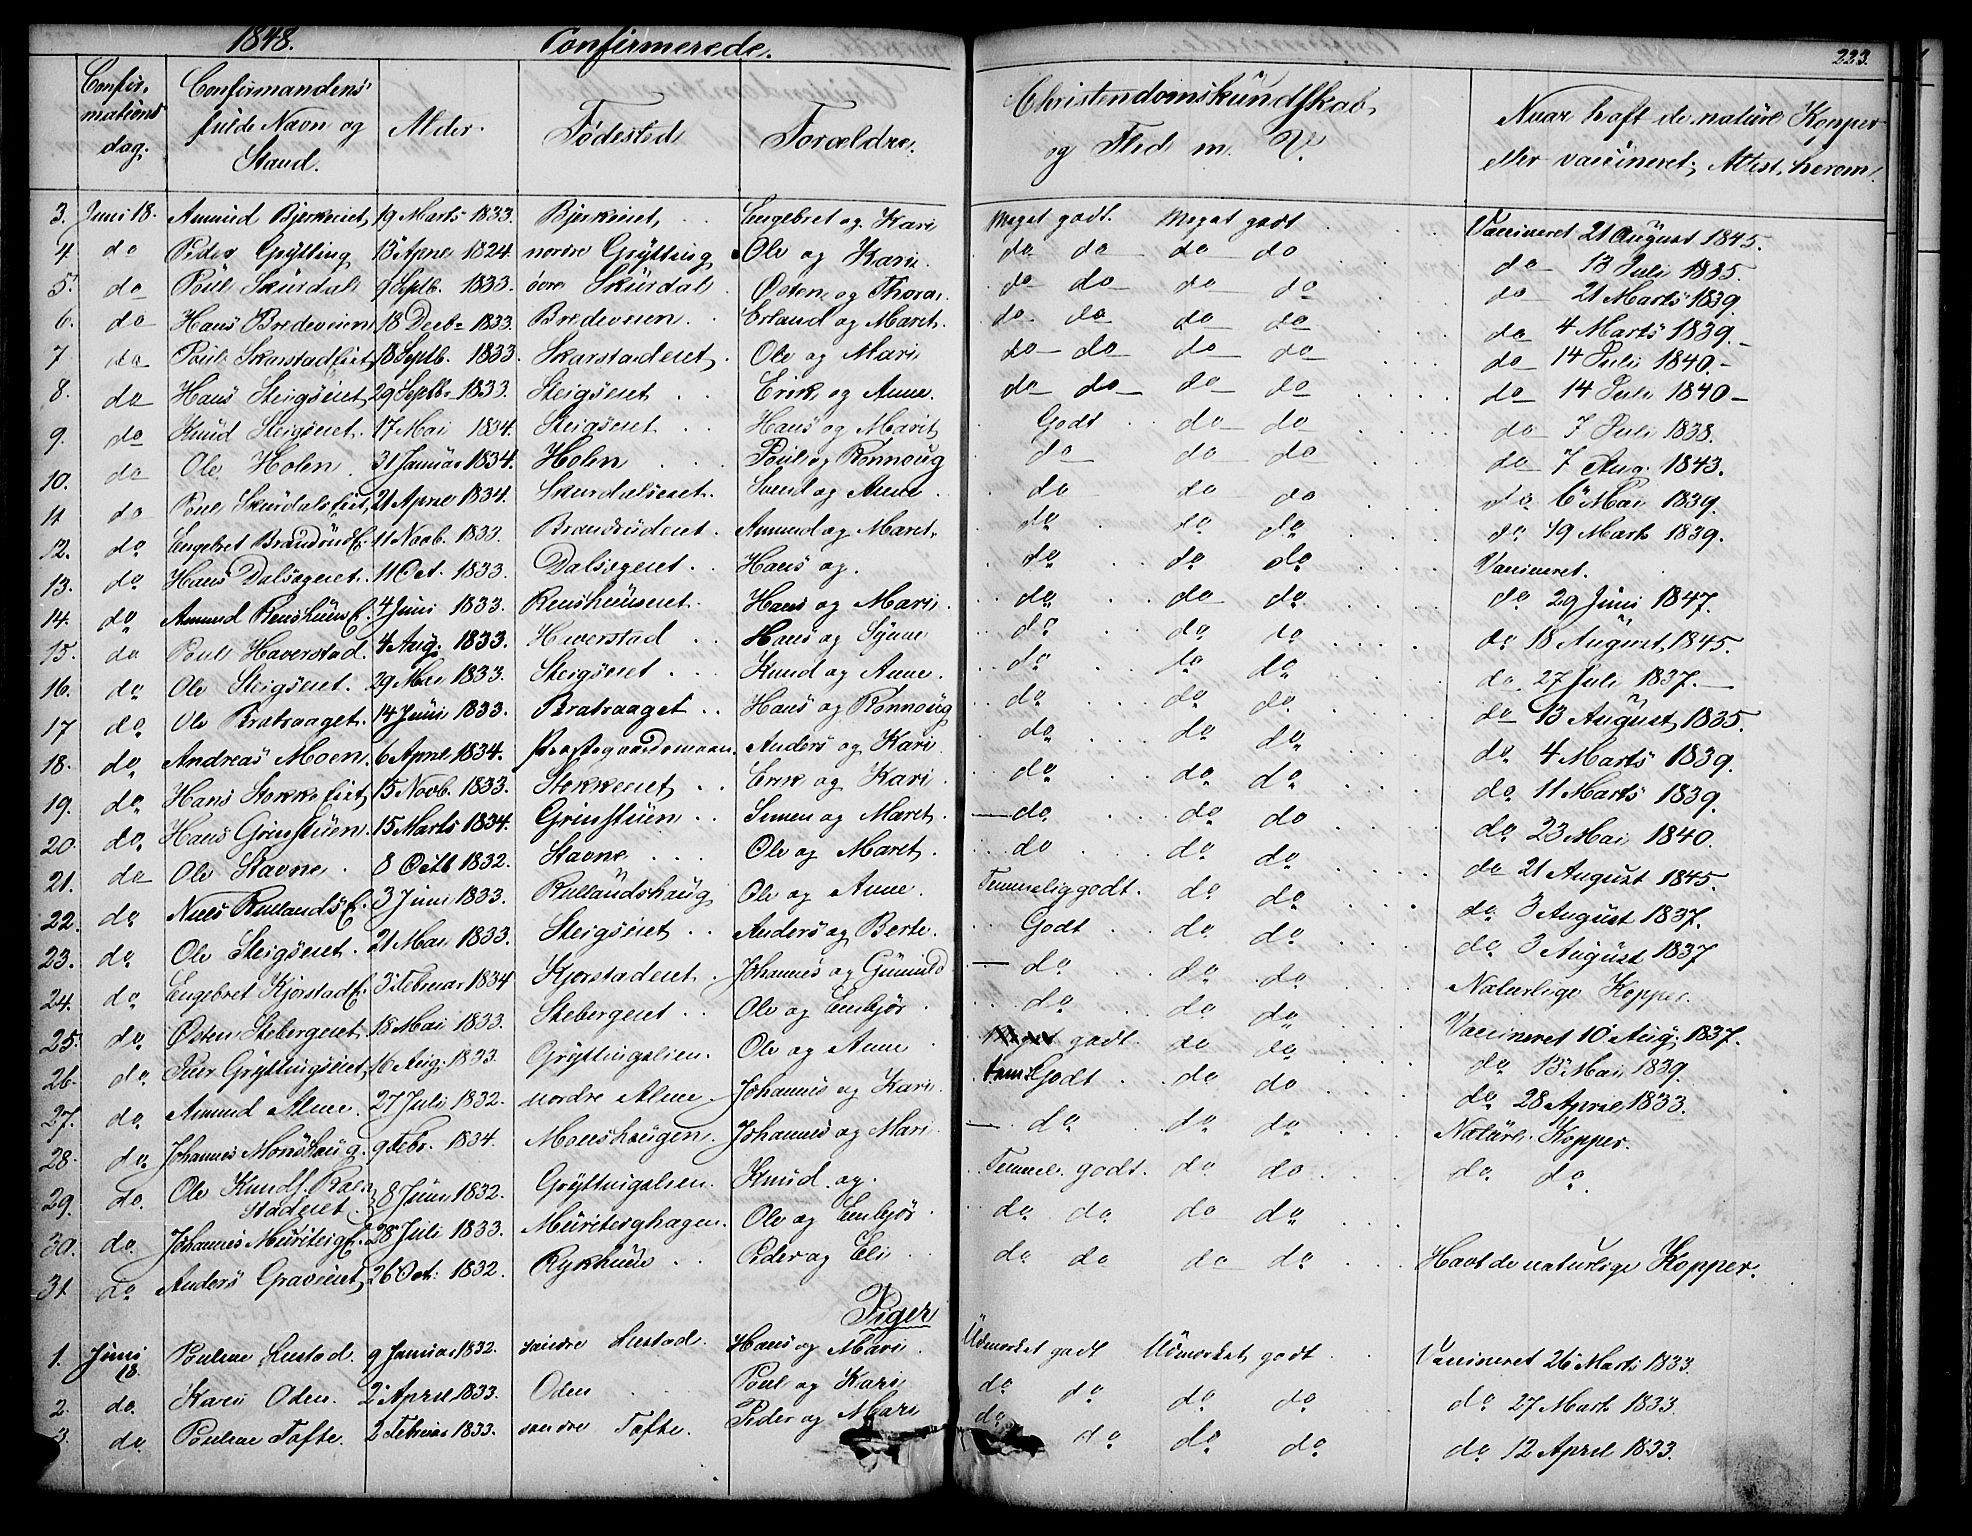 1848. Confirmerede. 223.
Confir-mations dag. | Confirmandens fulde Navn og Stand. | Alder. | Fødested | Forældre. | Christendomskundskab og Flid m. V. | Naar haft de naturl Kopper eller vaccineret, Attest herom.
3. Juni 18. Amund Bjerkeiet, 19 Marts 1833. Bjerkeiet, Engebret og Kari Meget godt. Meget godt Vaccineret 21 August 1845.
4 do Peder Grÿtting 13 April 1824. nordre Grÿtting Ole og Kari. do do do do do 13 Juli 1835.
5. do Poul Skurdal 9 Septb. 1833. övre Skurdal Østen og Thora. do do do do do 21 Marts 1839.
6. do Hans Bredeveien, 18 Decb. 1833. Bredeveien. Erland og Maret. do do do do do 4 Marts 1839.
7 do Poul Skarstadeiet, 18 Septb. 1833. Skarstadeiet, Ole og Mari do do do do do 14 Juli 1840.
8. do Hans Steigseiet, 29 Septb. 1833. Steigseiet Erik og Anne. do do do do do 14 Juli 1840
9. do Knud Steigseiet. 17 Mai 1834. Steigseiet Hans og Marit Godt do do do 7 Juli 1838.
10. do Ole Holen 31 Januar 1834. Holen Poul og Ronnoug do do do do 7 Aug. 1843.
11 do Poul Skurdalseiet, 21 April 1834. Skurdalseiet. Svend og Anne do do do do 6 Mai 1839.
12. do Engebret 11 Novb. 1833. Brandrudeiet. Amund og Maret. do do do do 19 Marts 1839.
13. do Hans Dalsegeiet. 11 Oct. 1833. Dalsegeiet. Hans og. do do do Vaccineret.
14. do Amund Renshuus E. 4 Juni 1833. Renshuuseiet. Hans og Mari. do do do do 29 Juni 1847.
15. do Poul Haverstad. 4 Aug. 1833. Haverstad Hans og Synne do do do do 18 August 1845.
16. do Ole Steigseiet. 29 Mai 1833. Steigseiet Knud og Anne. do do do do 27 Juli 1837.
17 do Ole Bratraaget. 14 Juni 1833. Bratraaget Hans og Ronnoug do do do do 13 August 1835.
18. do Andreas Moen. 6 April 1834. Præstegaardsmoen. Anders og Kari. do do do do 4 Marts 1839.
19. do Hans Stokkeeiet, 15 Novb. 1833. Stokkeeiet Erik og Kari. do do do do 11 Marts 1839.
20. do Hans Grinstuen. 15 Marts 1834. Grinstuen Simen og Maret. do do do do 23 Mai 1840.
21. do Ole Stavne 8 Octb 1832. Stavne Ole og Maret. do do do do 21 August 1845.
22. do Niels Rullands E. 3 Juni 1833. Rullandshaug Ole og Anne. Temmelig godt. do do do 3 August 1837.
23. do Ole Steigseiet. 21 Mai 1833. Steigseiet Anders og Berte. Godt do do do 3 August 1837
24. do Engebret Kjorstad E. 3 Februar 1834 Kjorstadeiet Johannes og Gunnild do do do Naturlige Kopper.
25. do Østen Stebergeiet 18 Mai 1833. Stebergeiet Ole og Embjör do do do Vaccineret 10 Aug. 1837.
26. do Peer Grÿttingseiet, 16 Aug. 1833. Grÿttingslien. Ole og Anne godt. do do do 13 Mai 1839.
27. do Amund Alme. 27 Juli 1832. nordre Alme. Johannes og Kari. tem. Godt do do do 28 April 1833.
28. do Johannes Monshaug. 9 Febr. 1834. Monshaugen. Johannes og Mari. do do do Naturl. Kopper.
29. do Ole Knuds. stadeiet 8 Juni 1832. Grÿttingslien. Knud og. Temmel. godt. do do do do
30. do Johannes Muriteig E. 28 Juli 1833. Muriteighagen. Ole og Embjör do do do do
31 do Anders Graveiet, 26 Oct: 1832. Rykhuus Peder og Eli do do do do Havt de naturlige Kopper.
Piger
1. Juni 18. Pouline Listad. 9 Januar 1832. søndre Listad. Hans og Mari. Udmerket godt Udmerket godt Vaccineret 26 Marts 1833.
2. do. Kari Oden. 2 April 1833. Oden Poul og Kari do do do do do 27 Marts 1833.
3. do Pouline Tofte. 2 Februar 1833. søndre Tofte. Peder og Mari do do do do do 12 April 1833.